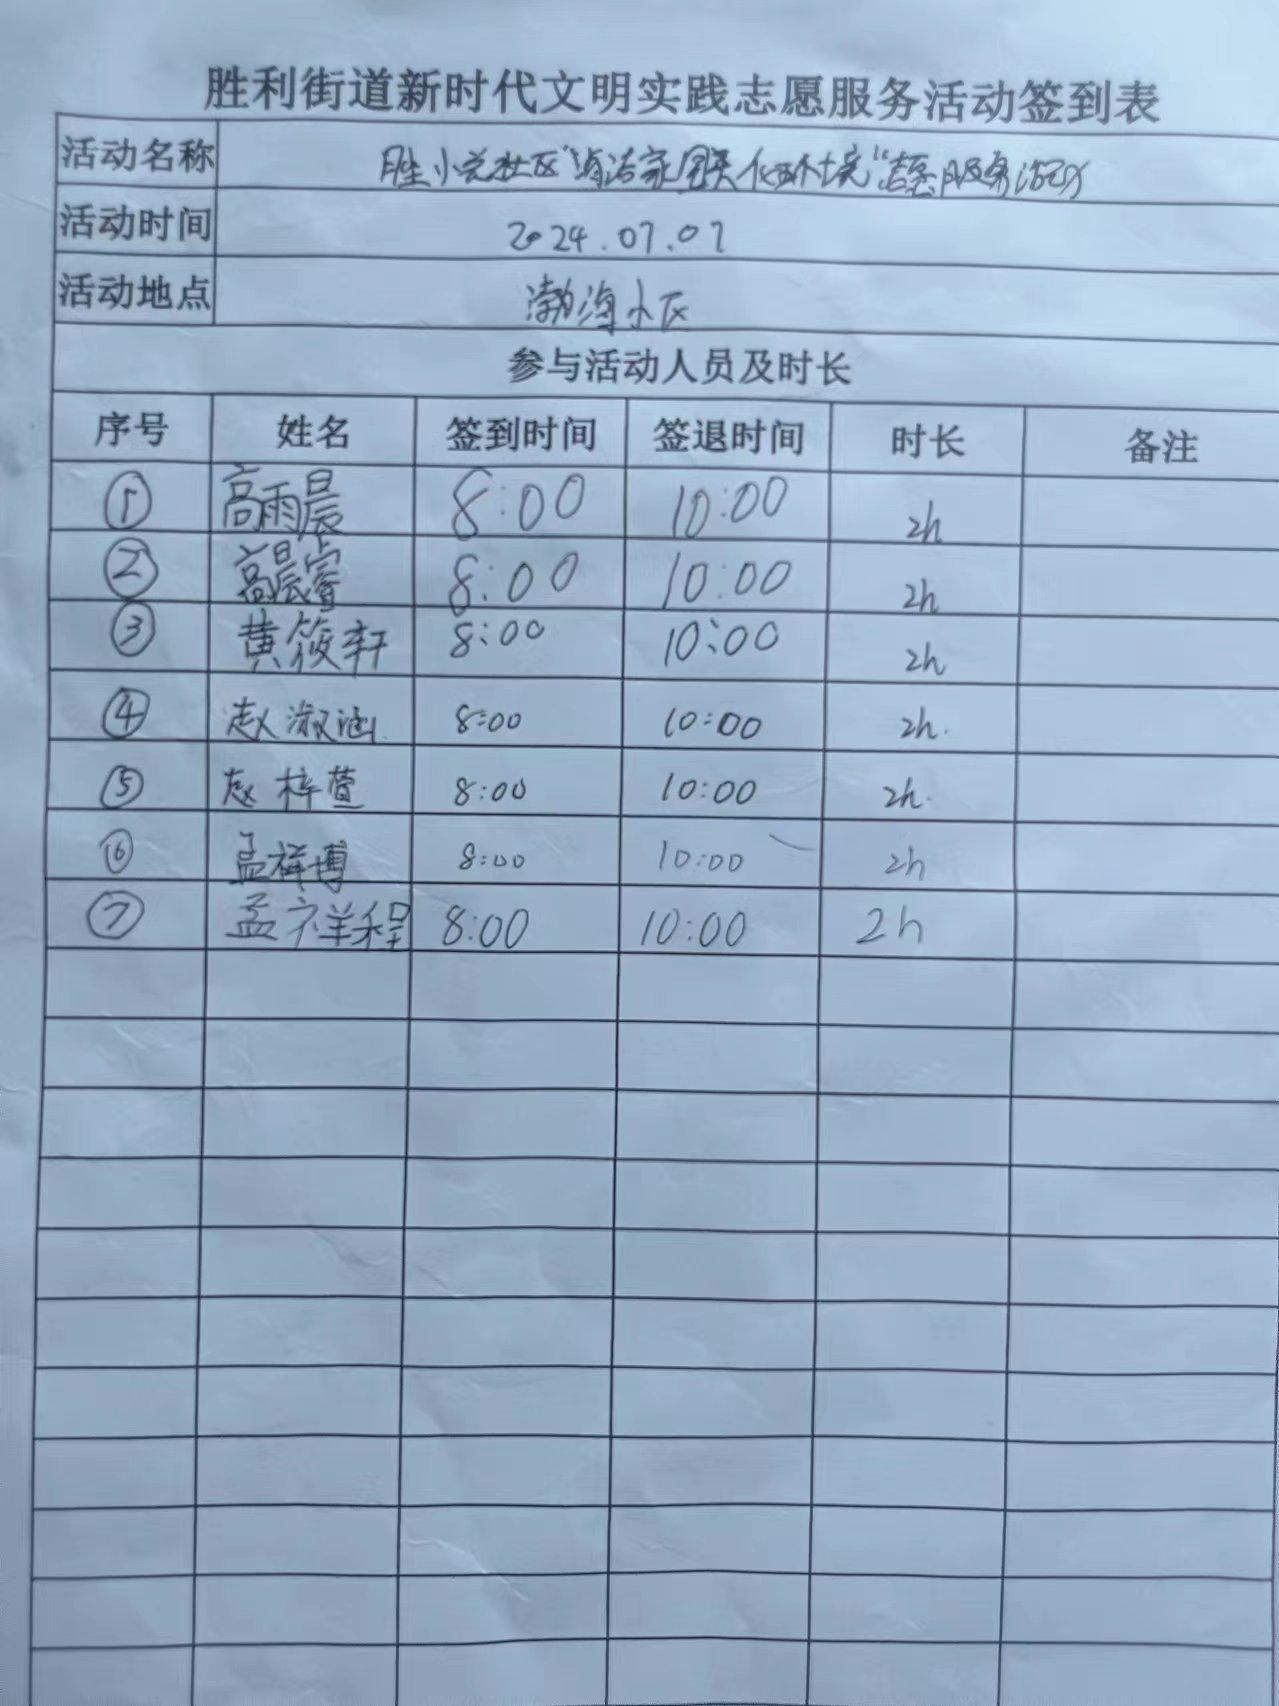 胜利街道新时代文明实践志愿服务活动签到表
活动名称 胜小兴社区"清洁家园美化环境"志愿服务活动
活动时间 2024.07.07
活动地点 渤海小区
参与活动人员及时长
序号 姓名 签到时间 签退时间 时长 备注
① 高雨晨 8:00 10:00 2h
② 高晨睿 8:00 10:00 2h
③ 黄筱轩 8:00 10:00 2h
④ 赵淑涵 8:00 10:00 2h.
⑤ 赵梓萱 8:00 10:00 2h.
⑥ 孟祥博 8:00 10:00 2h
⑦ 孟祥程 8:00 10:00 2h